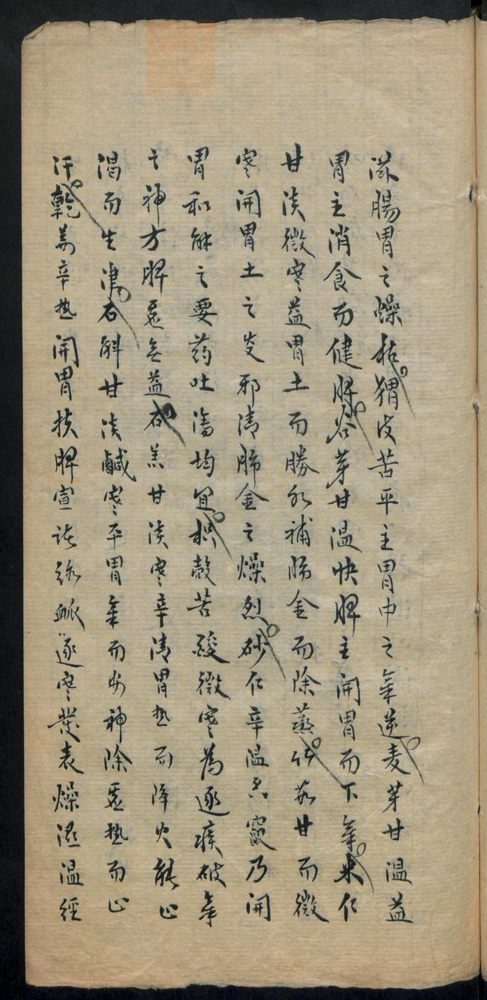 滋腸胃之燥枯猬皮苦平主胃中之氣逆麦芽甘温益
胃主消食而健脾谷芽甘温快脾主開胃而下氣米仁
甘淡微寒益胃土而勝水補肺金而除蒸竹茹甘而微
寒開胃土之炎邪清肺金之燥烈砂仁辛温三竅乃開
胃和解之要药吐瀉均宜枳殼苦酸微寒為逐痰破氣
之神方脾虛無益石羔甘淡寒辛清胃热而降火能止
渴而生津石斛甘淡鹹寒平胃氣而安神除虛热而止
汗乾姜辛热開胃扶脾宣诸絡脈逐寒發表燥湿温經